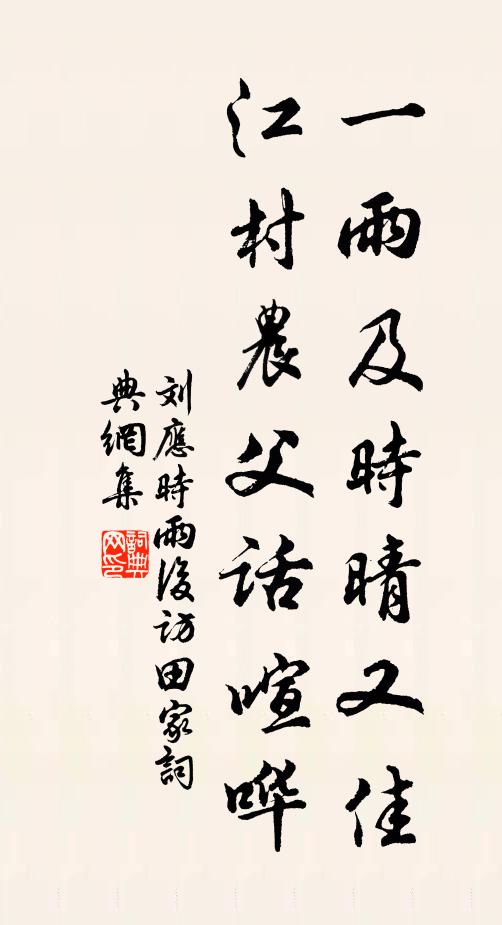 一雨及時晴又佳
江村農父話喧哗
刘應時雨後访田家詞
典網集
詞典网印